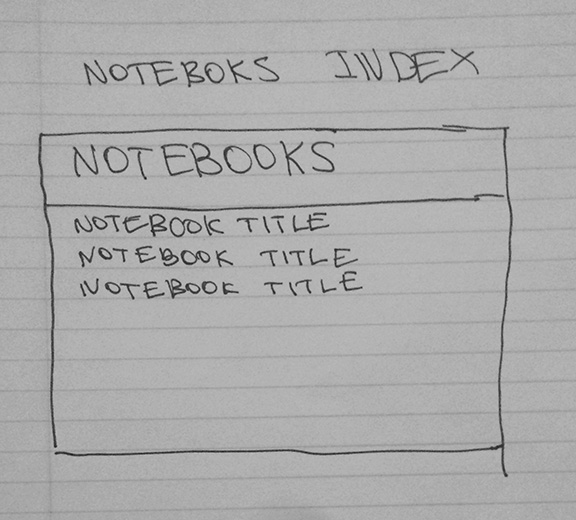 NOTEBOKS INDEX
NOTEBOOKS
NOTEBOOK TITLE
NOTEBOOK TITLE
NOTEBOOK TITLE